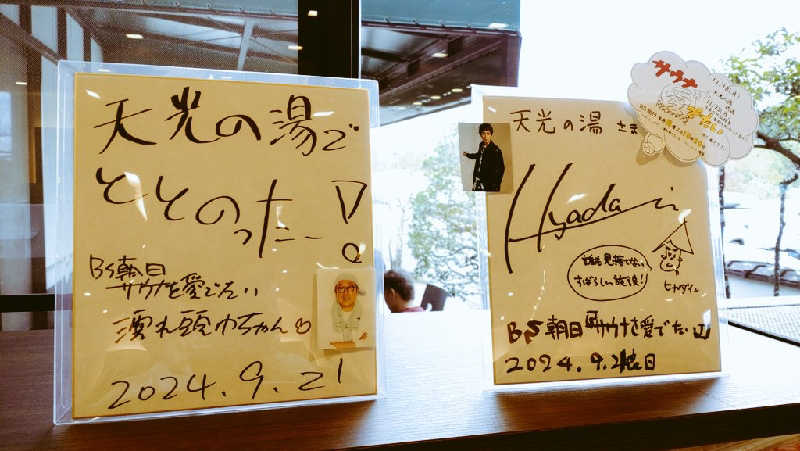 天光の湯で
ととのったー!
BS朝日
サウナを愛でたい
濡れ頭巾ちゃん
2024.9.21
サウナ
天光の湯さま
Hyadain
すばらしい施設!
ヒャダイン
BS朝日 サウナを愛でたい
2024.9.21